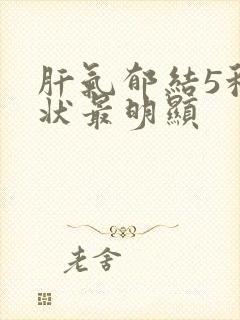 肝氣郁結5
状最明顯
老舍